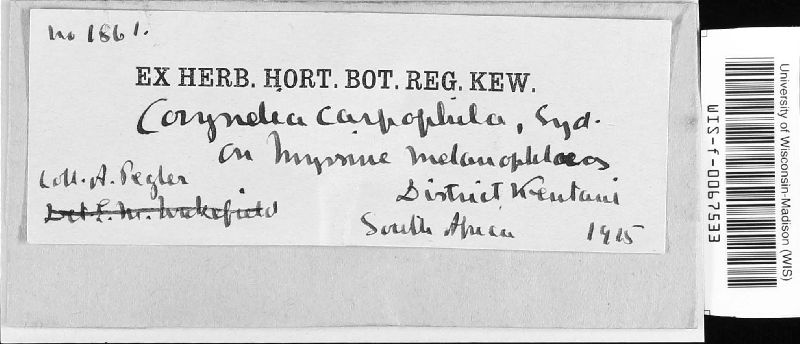 no 1861.
EX HERB. HORT. BOT. REG. KEW.
Corynelia carpophila, Syd.
on Myrsine melanophloeos
Coll. A. Pegler
District Kentani
Det E. M. Wakefield
South Africa 1915
University of Wisconsin-Madison (WIS)
WIS-f-0097533